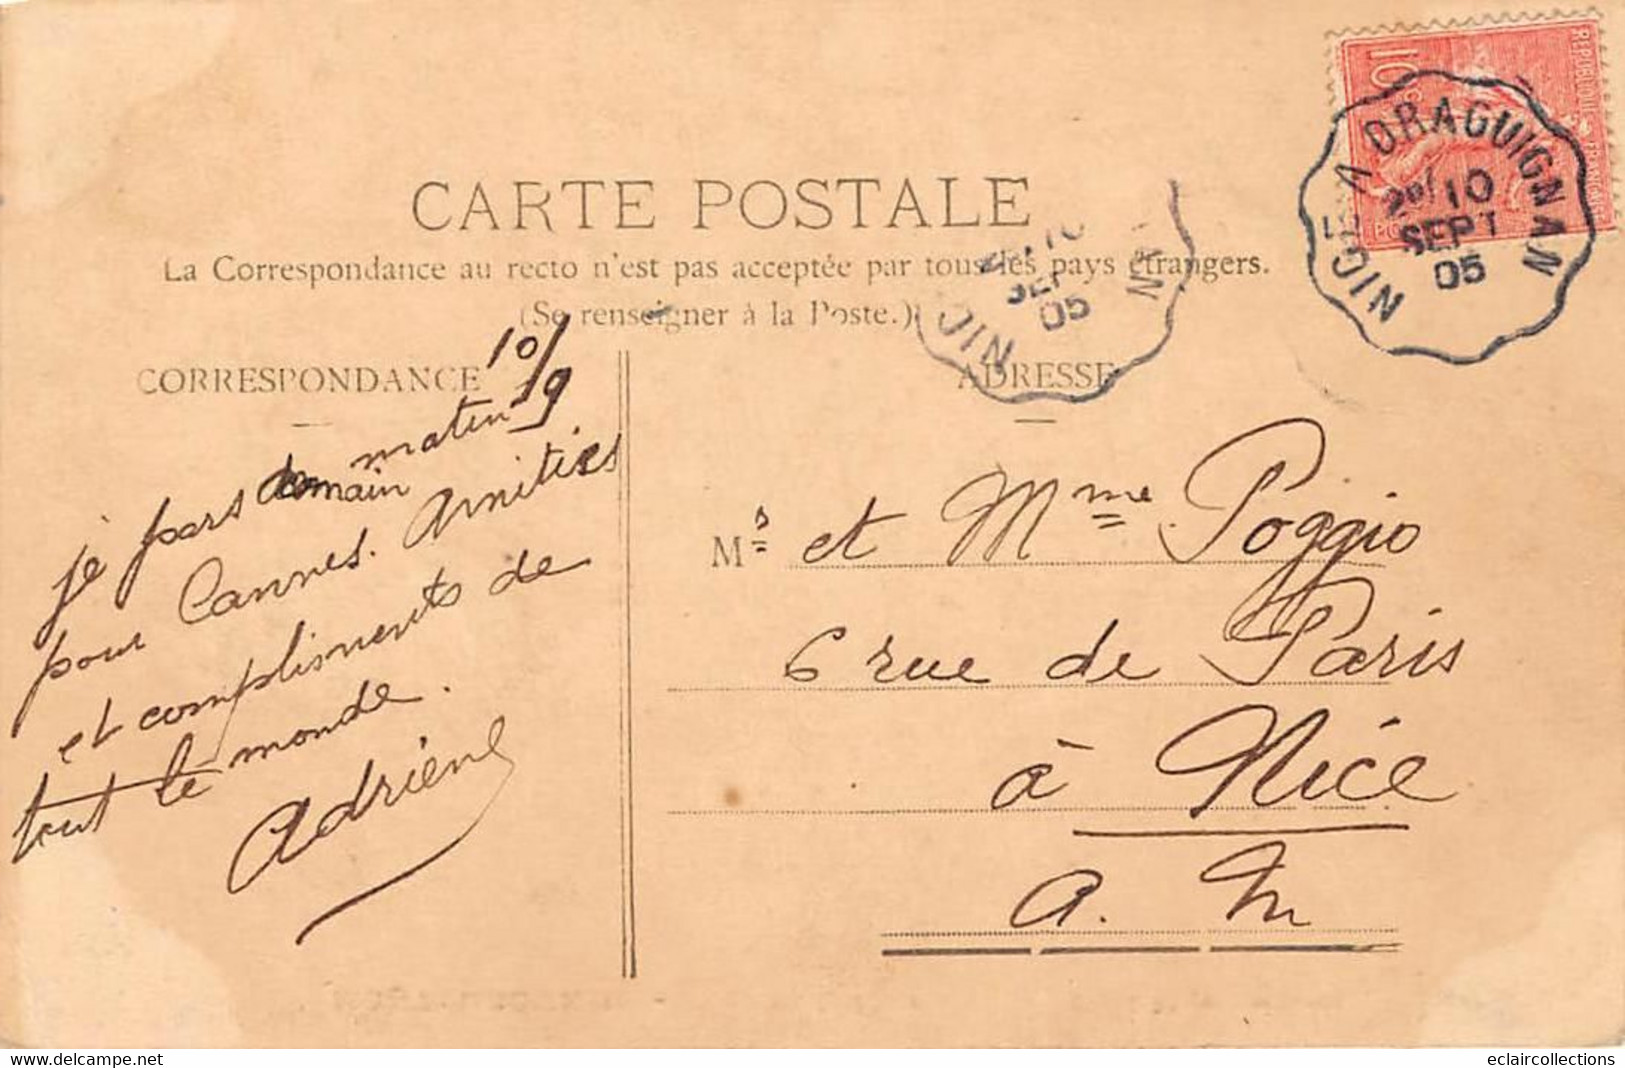 REPUBLIQUE FRANÇAISE
10c
NICE A DRAGUIGNAN
2º/10
SEPT
05
CARTE POSTALE
La Correspondance au recto n'est pas acceptée par tous les pays étrangers.
(Se renseigner à la Poste.)
10
SEPT
05
NIC
AN
CORRESPONDANCE
ADRESSE
10/9
je pars demain matin
pour Cannes. Amitiés
et compliments de
tout le monde.
Adriene
Ms et Mme Poggio
6 rue de Paris
à Nice
A. M
delcampe.net
eclaircollections